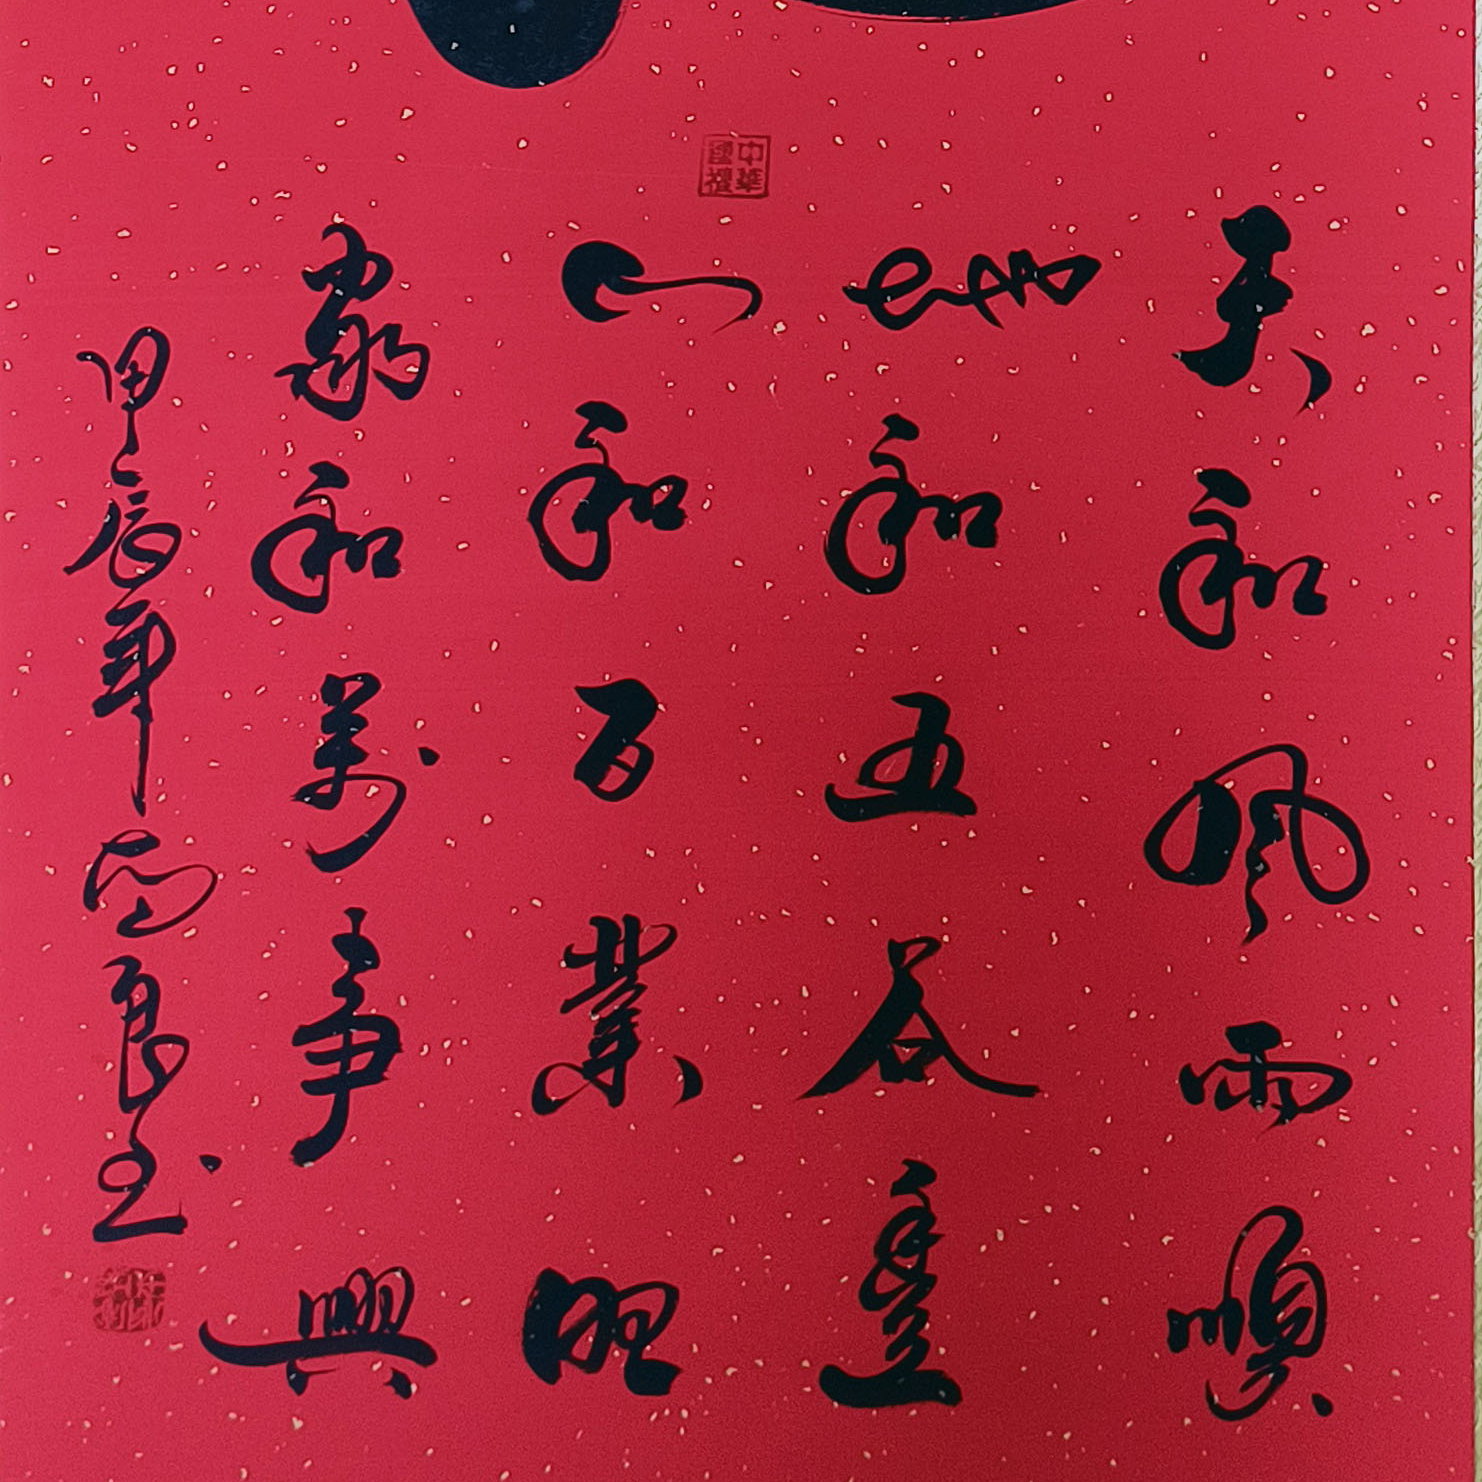 中華國禮
天和風雨順
地和五谷豐
人和百業旺
家和萬事興
甲辰年 良玉